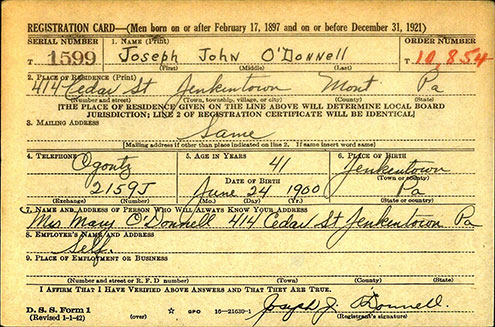 REGISTRATION CARD—(Men born on or after February 17, 1897 and on or before December 31, 1921)
SERIAL NUMBER 1. NAME (Print) ORDER NUMBER
T 1599 Joseph John O'Donnell T 10,854
(First) (Middle) (Last)
2. PLACE OF RESIDENCE (Print)
414 Cedar St Jenkintown Mont. Pa
(Number and street) (Town, township, village, or city) (County) (State)
[THE PLACE OF RESIDENCE GIVEN ON THE LINE ABOVE WILL DETERMINE LOCAL BOARD
JURISDICTION; LINE 2 OF REGISTRATION CERTIFICATE WILL BE IDENTICAL]
3. MAILING ADDRESS
Same
[Mailing address if other than place indicated on line 2. If same insert word same]
4. TELEPHONE 5. AGE IN YEARS 6. PLACE OF BIRTH
Ogontz 41 Jenkintown
DATE OF BIRTH (Town or county)
2159J June 24 1900 Pa
(Exchange) (Number) (Mo.) (Day) (Yr.) (State or country)
7. NAME AND ADDRESS OF PERSON WHO WILL ALWAYS KNOW YOUR ADDRESS
Mrs Mary O'Donnell 414 Cedar St Jenkintown Pa
8. EMPLOYER'S NAME AND ADDRESS
Self
9. PLACE OF EMPLOYMENT OR BUSINESS
(Number and street or R. F. D number) (Town) (County) (State)
I AFFIRM THAT I HAVE VERIFIED ABOVE ANSWERS AND THAT THEY ARE TRUE.
Joseph J. O'Donnell
D. S. S. Form 1
(Revised 1-1-42) (over) ☆ GPO 16—21630-1 (Registrant's signature)